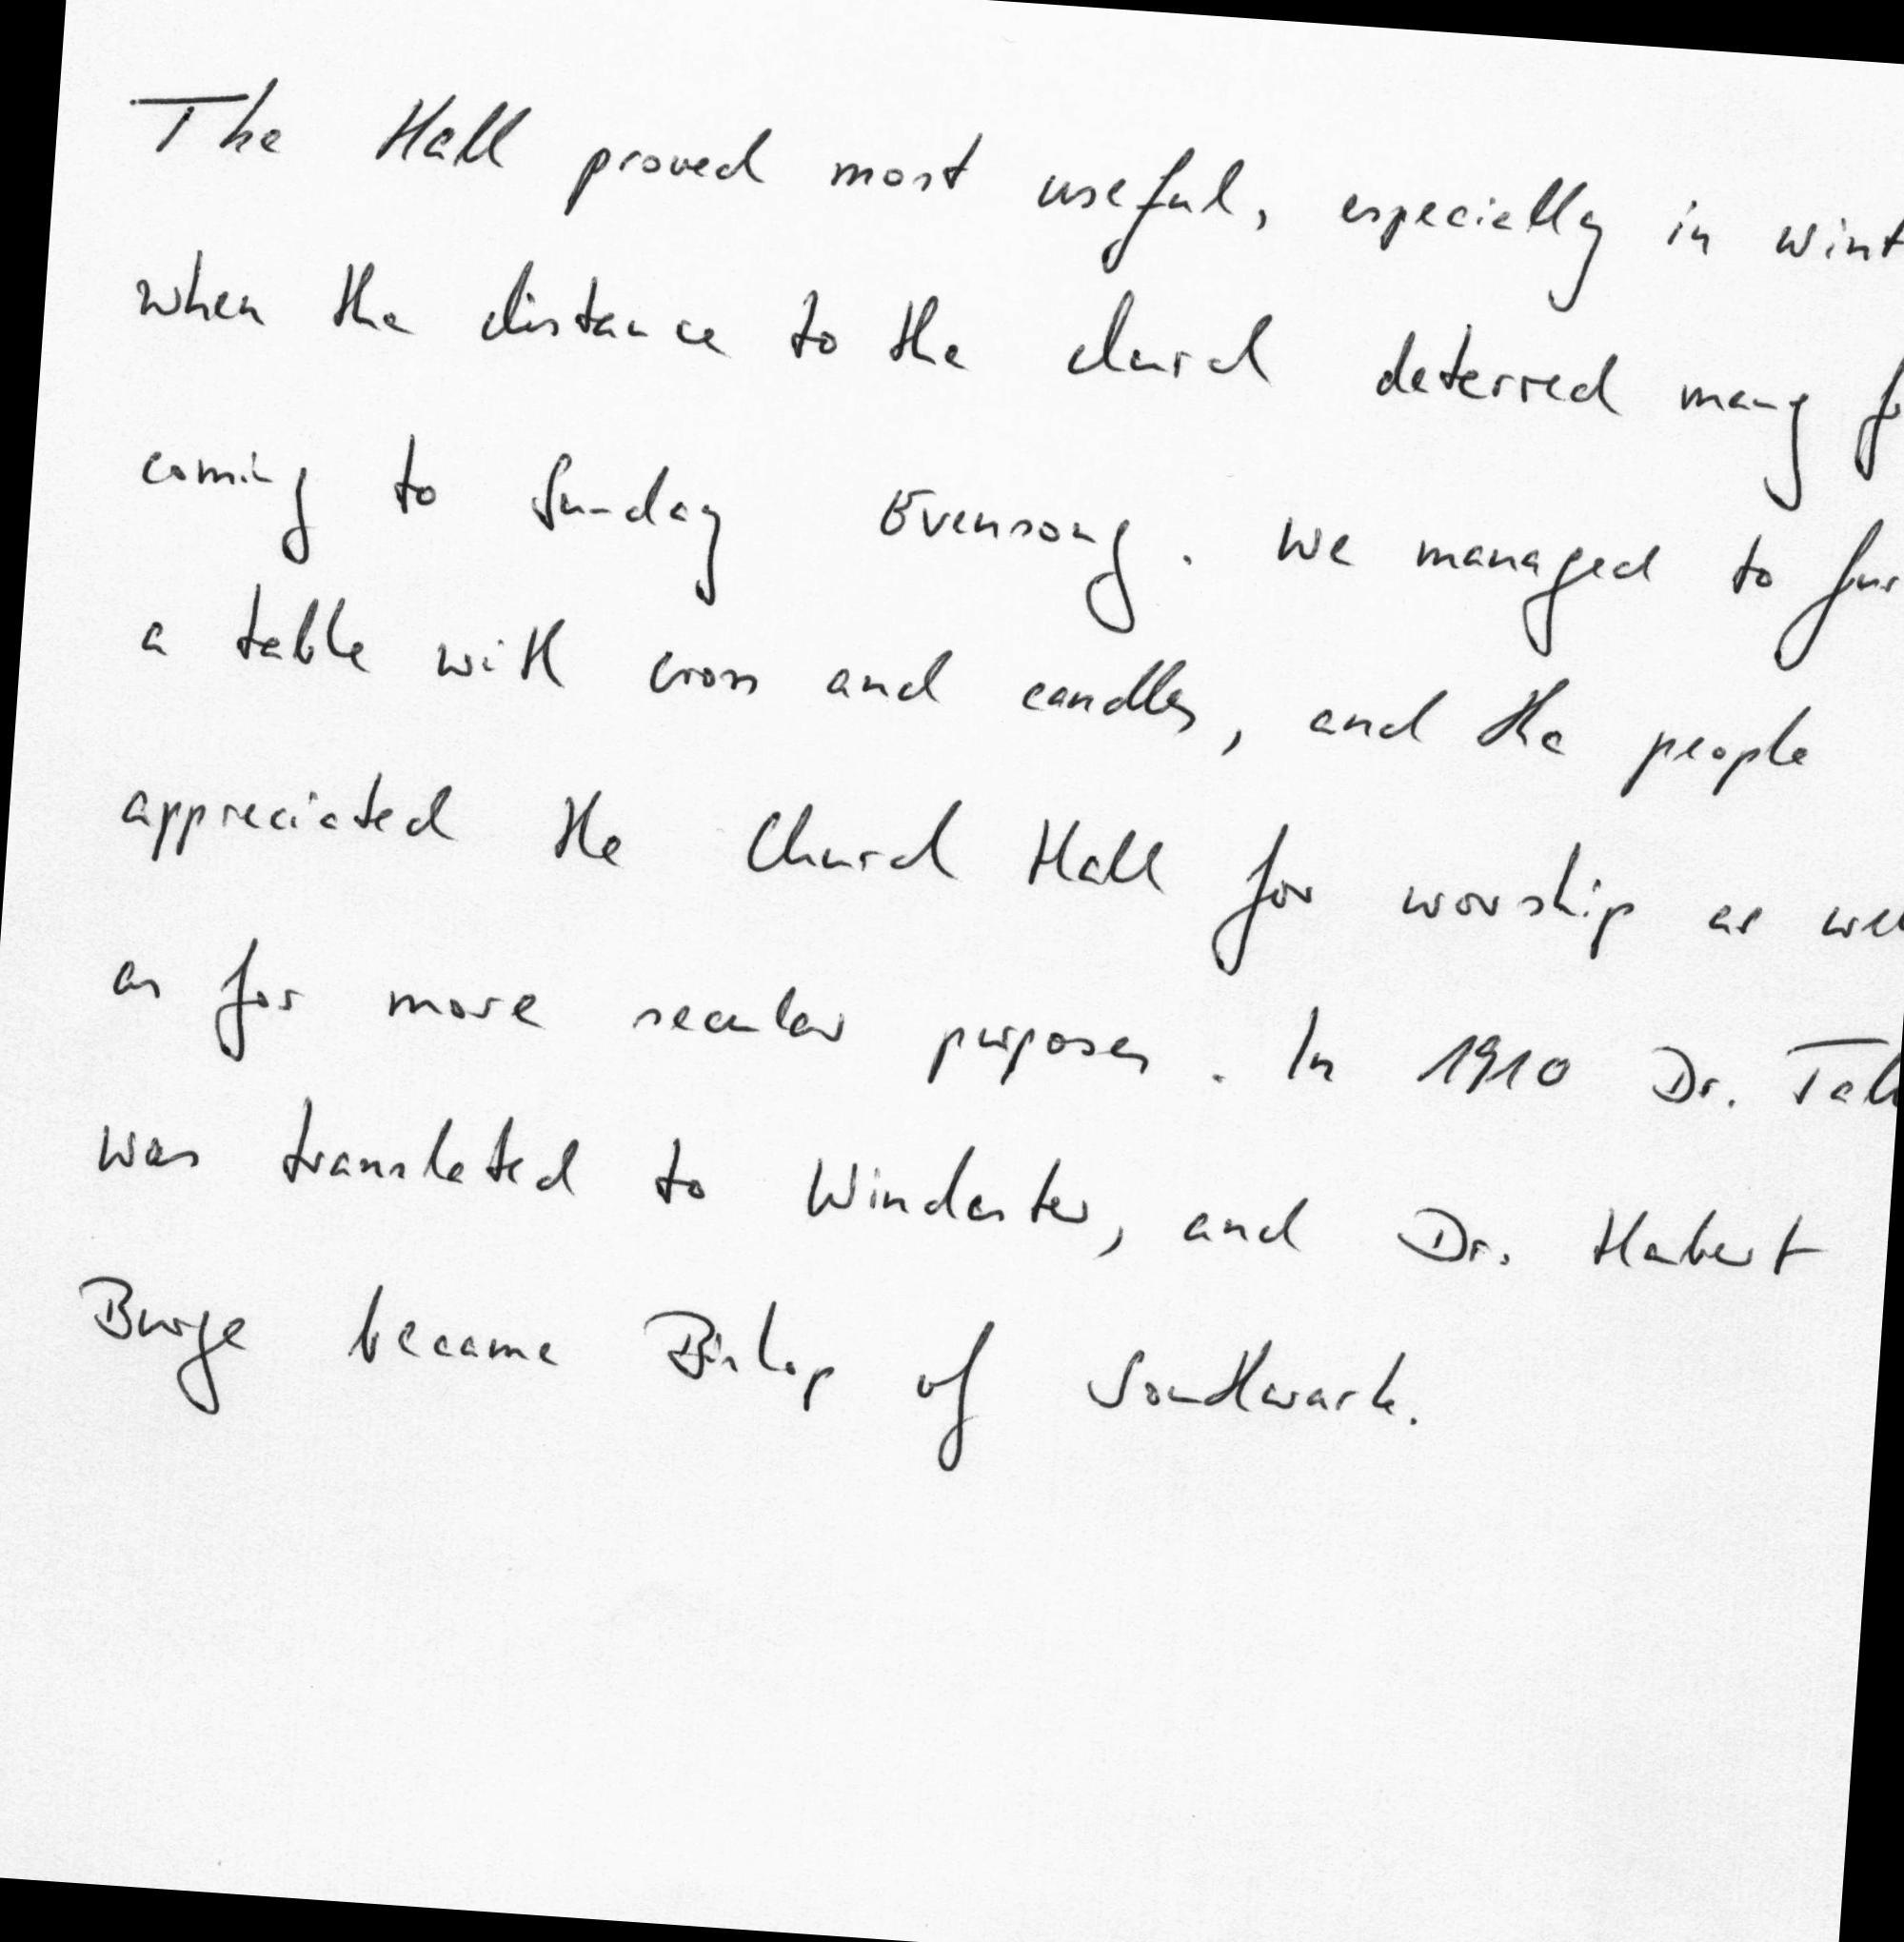 The Hall proved most useful, especially in wint
when the distance to the church deterred many
coming to Sunday Evensong. We managed to fur
a table with cross and candles, and the people
appreciated the Church Hall for worship as well
as for more secular purposes. In 1910 Dr. Tal
was translated to Winchester, and Dr. Hubert
Burge became Bishop of Southwark.